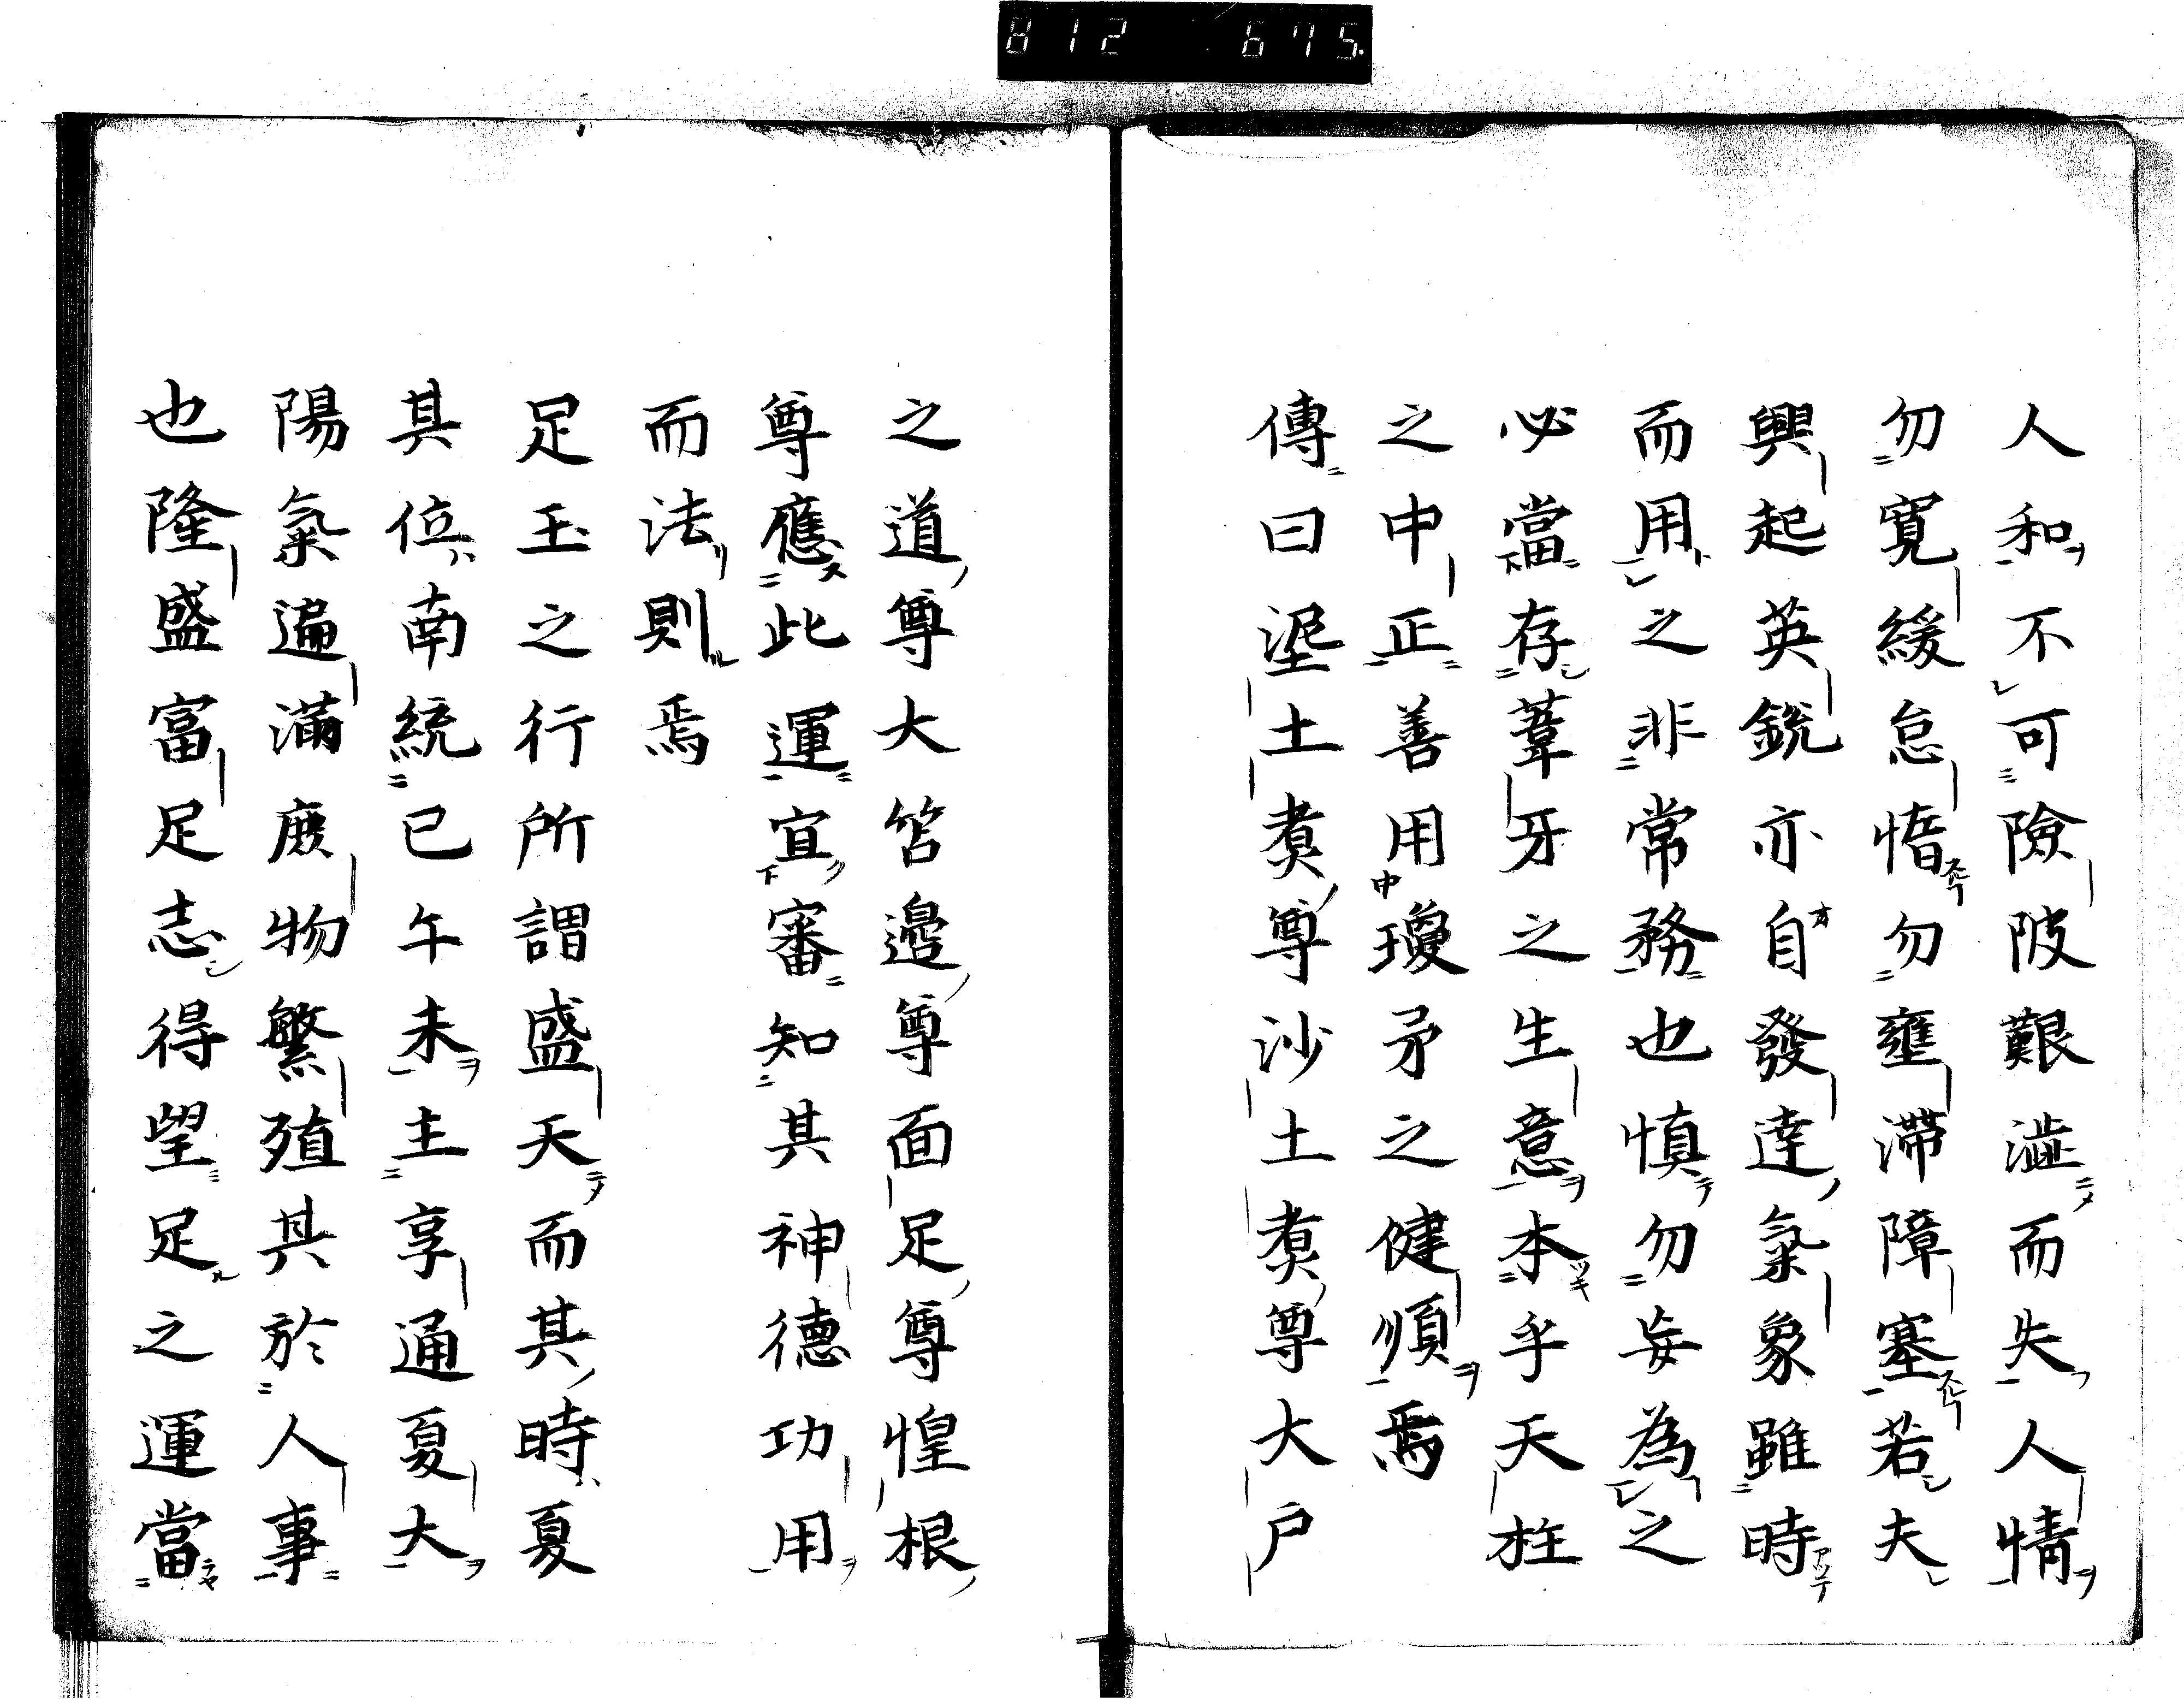 812 675.
人和不可險陂艱澁而失人情
勿寛緩怠惰勿壅滯障塞若夫
興起英銳亦自發達氣象雖時
而用之非常務也慎勿妄為之
必當存葦牙之生意本乎天柱
之中正善用瓊矛之健順焉
傳曰埿土煑尊沙土煑尊大戶
之道尊大笘邉尊面足尊惶根
尊應此運宜審知其神德功用
而法則焉
足玉之行所謂盛天而其時夏
其位南統巳午未主享通夏大
陽氣遍滿庶物繁殖其於人事
也隆盛富足志得望足之運當